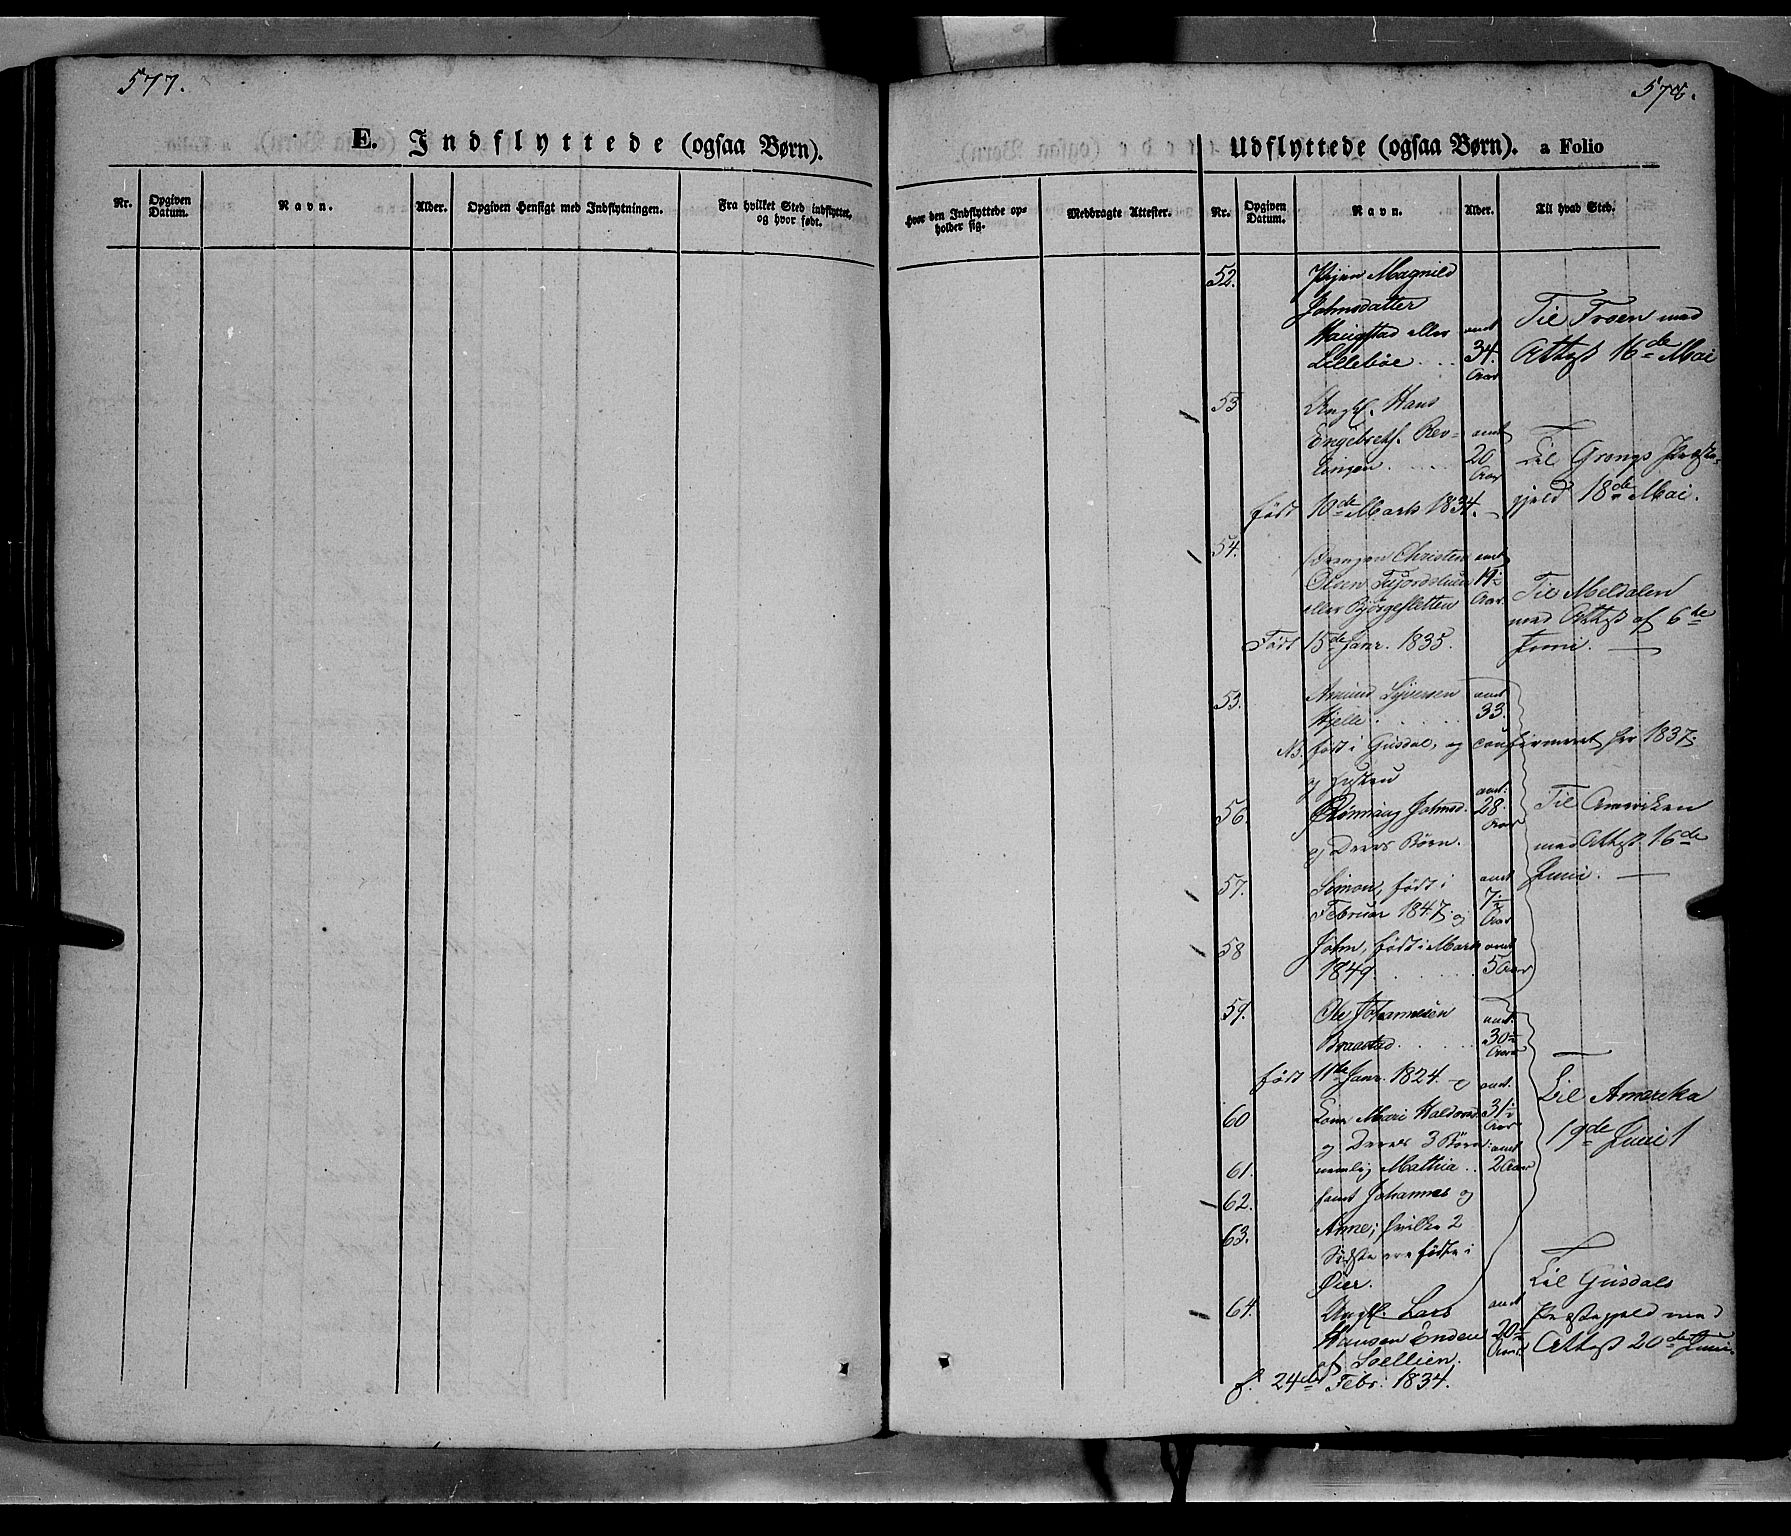 577.
578.
E. Indflyttede (ogsaa Børn).
Udflyttede (ogsaa Børn). a Folio
Nr.
Opgiven Datum.
Navn.
Alder.
Opgiven Hensigt med Indflytningen.
Fra hvilket Sted indflyttet, og hvor født.
Hvor den Indflyttede opholder sig.
Medbragte Attester.
Nr.
Opgiven Datum.
Navn.
Alder.
Til hvad Sted.
52. Pigen Magnild
Johnsdatter
Haugstad eller
Lillebøe . . . 34. Aar
Til Froen med
Attest 16de Mai
53 Ungk. Hans
Engebrets. Rev-
lingen . . . . 20 Aar
Til Grongs Præste-
gjeld 18de Mai.
født 10de Marts 1834.
54. Drengen Christen
Olsen Fjordslien 19½
eller Børgesletten Aar
Til Meldalen
med Attest af 6te
Juni.
Født 15de Janr. 1835.
53. Amund Syversen
Hjelle . . . . . 33.
NB. født i Gusdal, og confirmeret her 1837;
og Hustru
56. Rønnaug Johnsd. 28. Aar
og Deres Børn.
Til Amerika
med Attest 16de
Juni.
57. Simon, født i
Februar 1847; og 7½ Aar
58 John, født i Marts
1849. . . . . 5 Aar
59. Ole Johannesen
Braastad. . . . . 30½ Aar
født 11te Janr. 1824. og
60 Kone Mari Haldorsd. 31½ Aar
og Deres 3 Børn:
Til Amerika
19de Juni
61. nemlig Mathia . . 2 Aar
62. samt Johannes og
63. Anne; hvilke 2
Sidste ere fødte i
Øier.
64. Ungk. Lars
Hansen Enden 20½
af Soellien. Aar
Til Gusdals
Præstegjeld med
Attest 20de Juni.
f. 24de Febr. 1834.